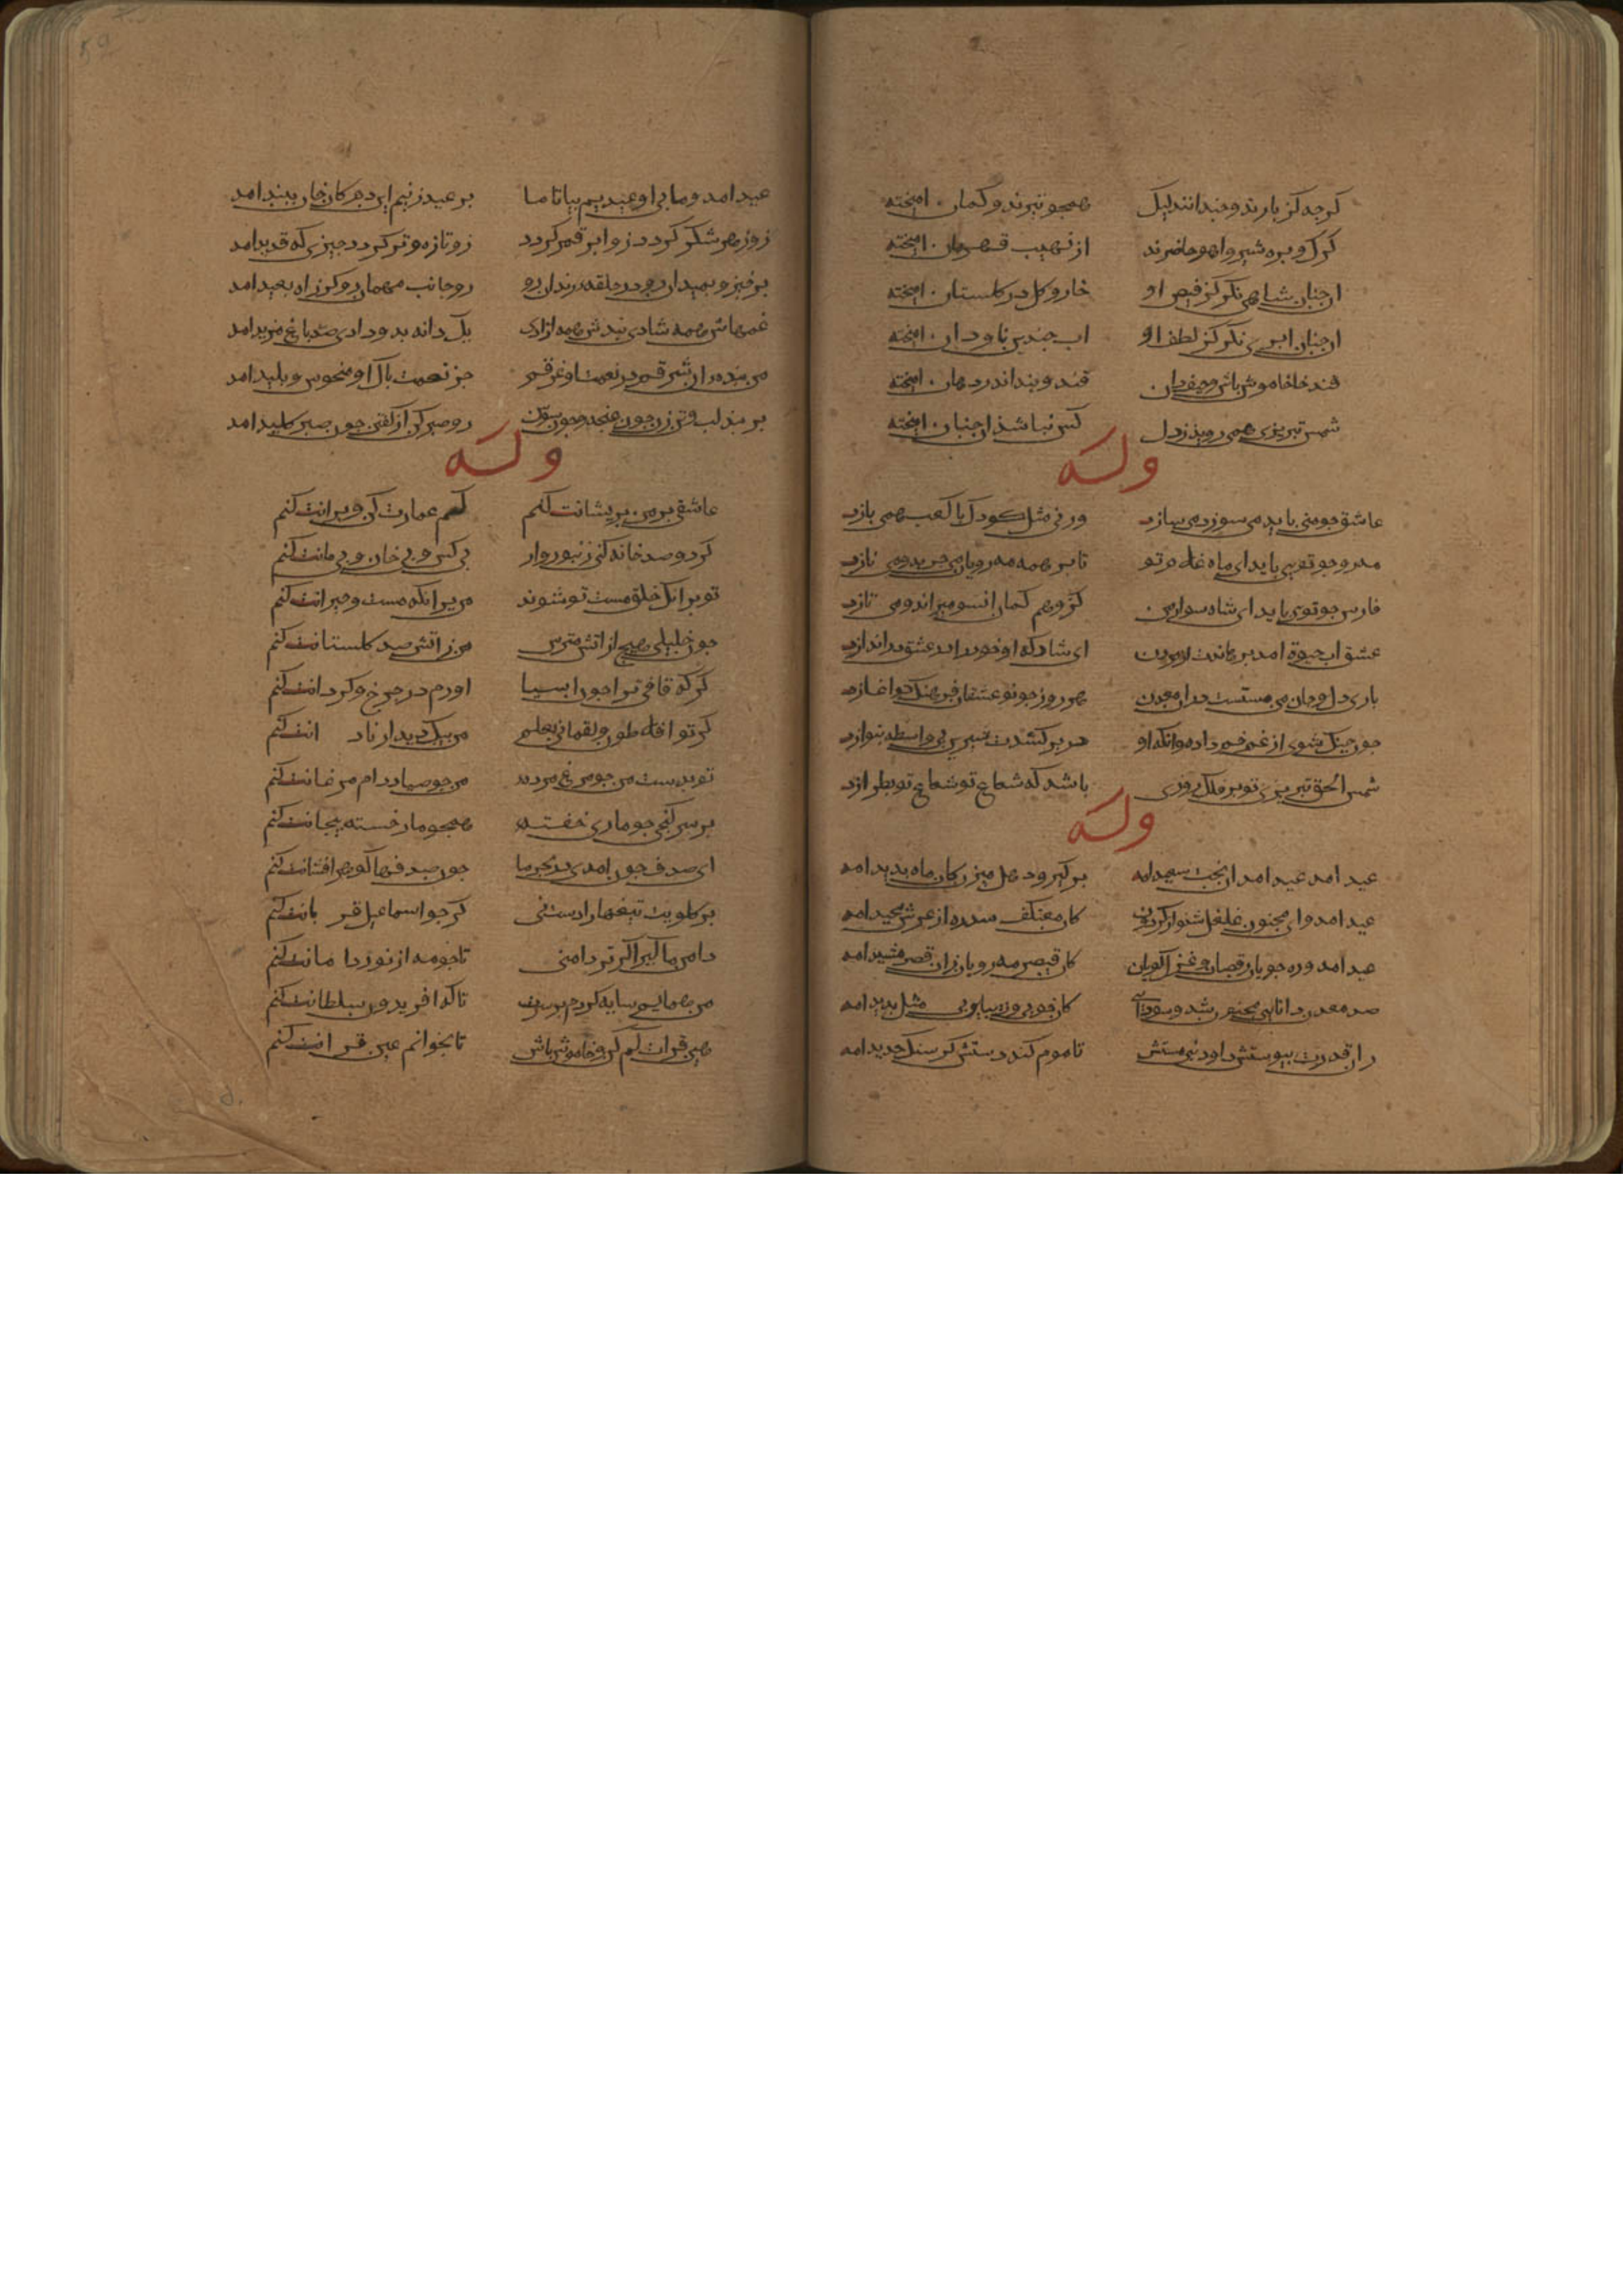 کرچه کژ بازند و ضدانند لیک همچو تیرند و کمان امیخته
کرک و بره شیر و اهو حاضرند از نهیب قهرمان امیخته
انجنان شاهی نکر کز فیض او خار و کل در کلستان امیخته
انجنان ابری نکر کز لطف او اب جندین ناودان امیخته
قند خا خاموش باش و حیف دان قند و بند اندر دهان امیخته
شمس تبریزی همی روید ز دل کس نباشد انجنان امیخته
وله
عاشق جو منی باید می سوزد می سازد ور نی مثل کودک با کعب همی بازد
مه رو جو توی باید ای ماه غلام تو تا بر همه مه رویان می جربد و می نازد
فارس جو توی باید ای شاه سوار من کز وهم کمان انسو میراند و می تازد
عشق اب حیوة امد برهاندت از مردن ای شاد که او خود را در عشق دراندازد
باری دل و جان من مستست در ان معدن هر روز جو نو عشقان فرهنک نو اغازد
جون جنک شوی از غم خم داده وانکه او در بر کشدت شیرین بی واسطه بنوازد
شمس الحق تبریزی تو بر فلک روزی باشد که شعاع تو شعاع تو بطرازد
وله
عید امد عید امد ان بخت سعید امد بر کیر و دهل میزن کان ماه بدید امد
عید امد و ای مجنون غلغل شنو از کردون کان معتکف سدره از عرش مجید امد
عید امد و ره جویان رقصان و غزل کویان کان قیصر مه رویان زان قصر مشید امد
صد معدن دانایی مجنون شد و سودایی کان خوبی و زیبایی بی مثل بدید امد
زان قدرت بیوستش داود نبی مستش تا موم کند دستش کر سنک حدید امد
عید امد و ما بی او عیدیم بیا تا ما بر عید زنیم این دم کان خوان بدید امد
زو زهر شکر کردد زو ابر قمر کردد زو تازه و تر کردد جیزی که قدید امد
برخیز و بمیدان رو در حلقه رندان رو رو جانب مهمان رو کز راه بعید امد
غمهاش همه شادی بندش همه ازادی یک دانه بدو دادی صد باغ مزید امد
من بنده ان شرقم در نعمت او غرقم جز نعمت باک او منحوس و بلید امد
بر بند لب و تن زن جون غنچه و جون سوسن رو صبر کن از کفتن جون صبر کلید امد
وله
عاشقی بر من بریشانت کنم کم عمارت کن که ویرانت کنم
کر دو صد خانه کنی زنبوروار بی کس و بی خان و بی مانت کنم
تو بر انک خلق مست تو شوند من بر انکه مست و حیرانت کنم
جون خلیلی هیج از اتش مترس من ز اتش صد کلستانت کنم
کر که قافی ترا جون اسیا اورم در جرخ و کردانت کنم
کر تو افلاطون و لقمانی بعلم من بیک دیدار نادانت کنم
تو بدست من جو مرغ مرده من جو صیادم دام مرغانت کنم
بر سر کنجی جو ماری خفته همجو مار خسته بیجانت کنم
ای صدف جون امدی در بحر ما جون صدفها کوهر افشانت کنم
بر کلویت تیغها را دست نی کر جو اسماعیل قربانت کنم
دامن ما کیر اکر تر دامنی تا جو مه از نور دامانت کنم
من همایم سایه کردم بر سرت تا که افریدون سلطانت کنم
هین قرات کم کن و خاموش باش تا بخوانم عین قرانت کنم